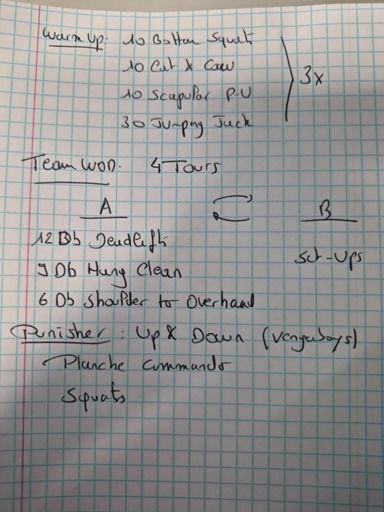 Warm up: 10 Bottom Squats
10 Cat & Cow
10 Scapular P-U
30 Jumping Jack
3x
Team WOD. 4 Tours
A B
12 Db Deadlift
9 Db Hang Clean
Sit-Ups
6 Db Shoulder to Overhand
Punisher: Up & Down (Vengaboys)
Planche Commando
Squats